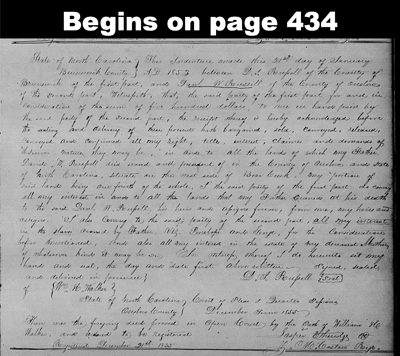 Begins on page 434
State of North Carolina } This Indenture made this 20th day of January
Brunswick County } A.D. 1853 between D. L. Russell of the County of
Brunswick of the first part, and Daniel W. Russell of the County of Onslow
of the second part, Witnesseth, that, the said party of the first part for and in
consideration of the sum of five hundred dollars, to me in hand paid by
the said party of the second part, the receipt whereof is hereby acknowledged before
the sealing and delivery of these presents hath bargained, sold, conveyed, released,
conveyed and confirmed all my right, title, interest, claims and demands of
whatever nature they may be in and to all the lands of which my Father
David W. Russell died seized and possessed of in the County of Onslow and State
of North Carolina, situate on the west side of River Creek, my portion of
said lands being one fourth of the whole. I the said party of the first part do convey
all my interest in and to all the lands that my Father owned at his death
to the said W. Russell his heirs and assigns forever from me, my heirs and
assigns. I also convey to the said party of the second part all my interest
in the slaves owned by Father, viz. and George, for the consideration
before mentioned. And also all my interest in the estate of my deceased Mother
of whatever kind it may be in. In witness whereof I do hereunto set my
hand and seal, the day and date first above written. Signed, sealed
and delivered in presence } D. L. Russell (Seal)
of } Wm. H. Walker }
State of North Carolina } Court of Pleas & Quarter Sessions
Onslow County } December Term 1855
Then was the foregoing deed proved in Open Court by the Oath of William H.
Walker, and ordered to be registered. Jasper Etheridge Clk
Registered December 20th 1855 By